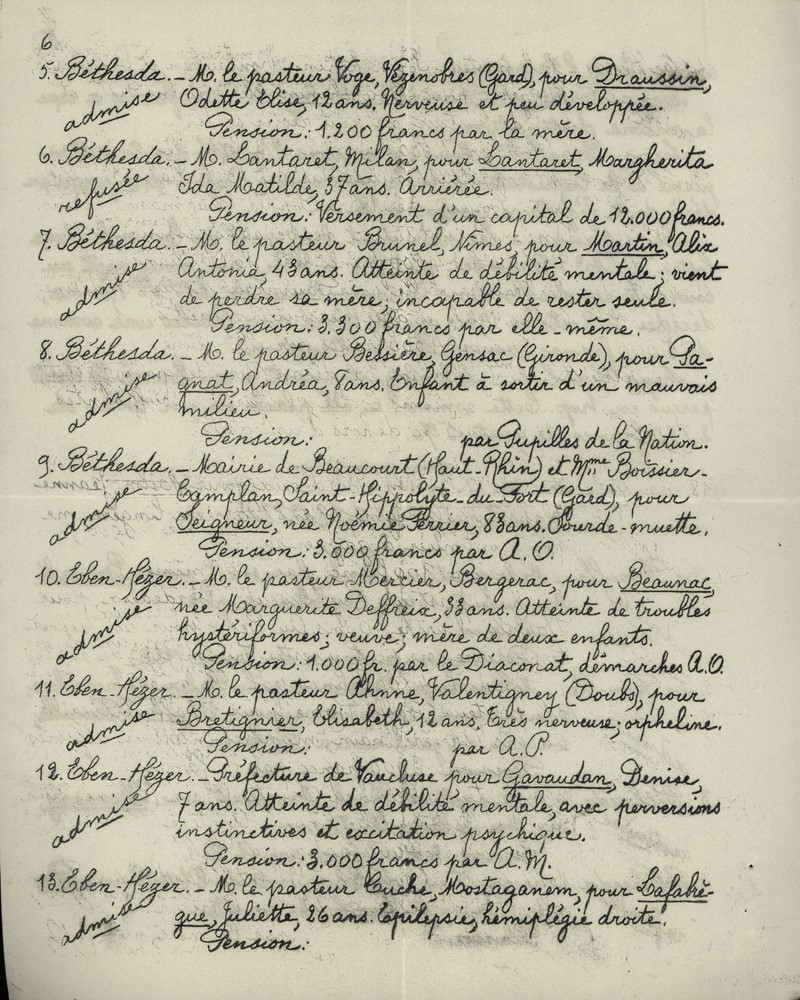 6
5. Béthesda. – M. le pasteur Voge, Vézenobres (Gard), pour Draussin,
admise Odette Elise, 12 ans. Nerveuse et peu développée.
Pension: 1.200 francs par la mère.
6. Béthesda. – M. Lantaret, Milan, pour Lantaret, Margherita
refusée Ida Matilde, 37 ans. Arriérée.
Pension: Versement d'un capital de 12.000 francs.
7. Béthesda – M. le pasteur Brunel, Nîmes, pour Martin, Alix
admise Antonia, 43 ans. Atteinte de débilité mentale; vient
de perdre sa mère; incapable de rester seule.
Pension: 3.300 francs par elle-même.
8. Béthesda. – M. le pasteur Bessière, Gensac (Gironde), pour Pa-
admise gnat, Andréa, 8 ans. Enfant à sortir d'un mauvais
milieu.
Pension: par Pupilles de la Nation.
9. Béthesda. – Mairie de Beaucourt (Haut-Rhin) et Mme Boissier-
admise Egmplan, Saint-Hippolyte-du-Fort (Gard), pour
Seigneur, née Noémie Ferrier, 83 ans. Sourde-muette.
Pension: 3.600 francs par A.O.
10. Eben-Hézer. – M. le pasteur Mercier, Bergerac, pour Beaunac,
admise née Marguerite Deffreix, 33 ans. Atteinte de troubles
hystériformes; veuve; mère de deux enfants.
Pension: 1.000 fr. par le Diaconat, démarches A.O.
11. Eben-Hézer. – M. le pasteur Ahnne, Valentigney (Doubs), pour
admise Bretignier, Elisabeth, 12 ans. Très nerveuse; orpheline.
Pension: par A.P.
12. Eben-Hézer. – Préfecture de Vaucluse pour Gavaudan, Denise,
admise 7 ans. Atteinte de débilité mentale, avec perversions
instinctives et excitation psychique.
Pension: 3.000 francs par A.M.
13. Eben-Hézer. – M. le pasteur Cuche, Mostaganem, pour Lafabrè-
admise gue, Juliette, 26 ans. Epilepsie, hémiplégie droite.
Pension: